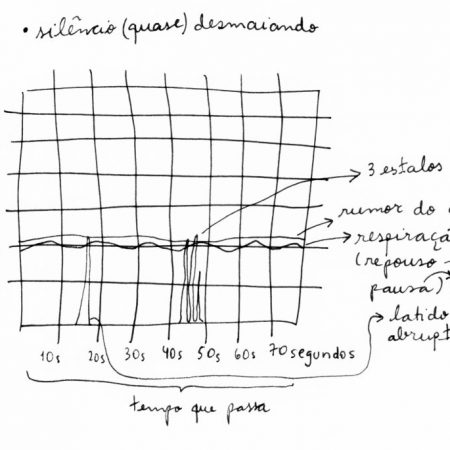 • silêncio (quase) desmaiando
3 estalos
rumor do
respiraçã
(repouso -
pausa)
latido
abrupt
10s 20s 30s 40s 50s 60s 70 segundos
tempo que passa